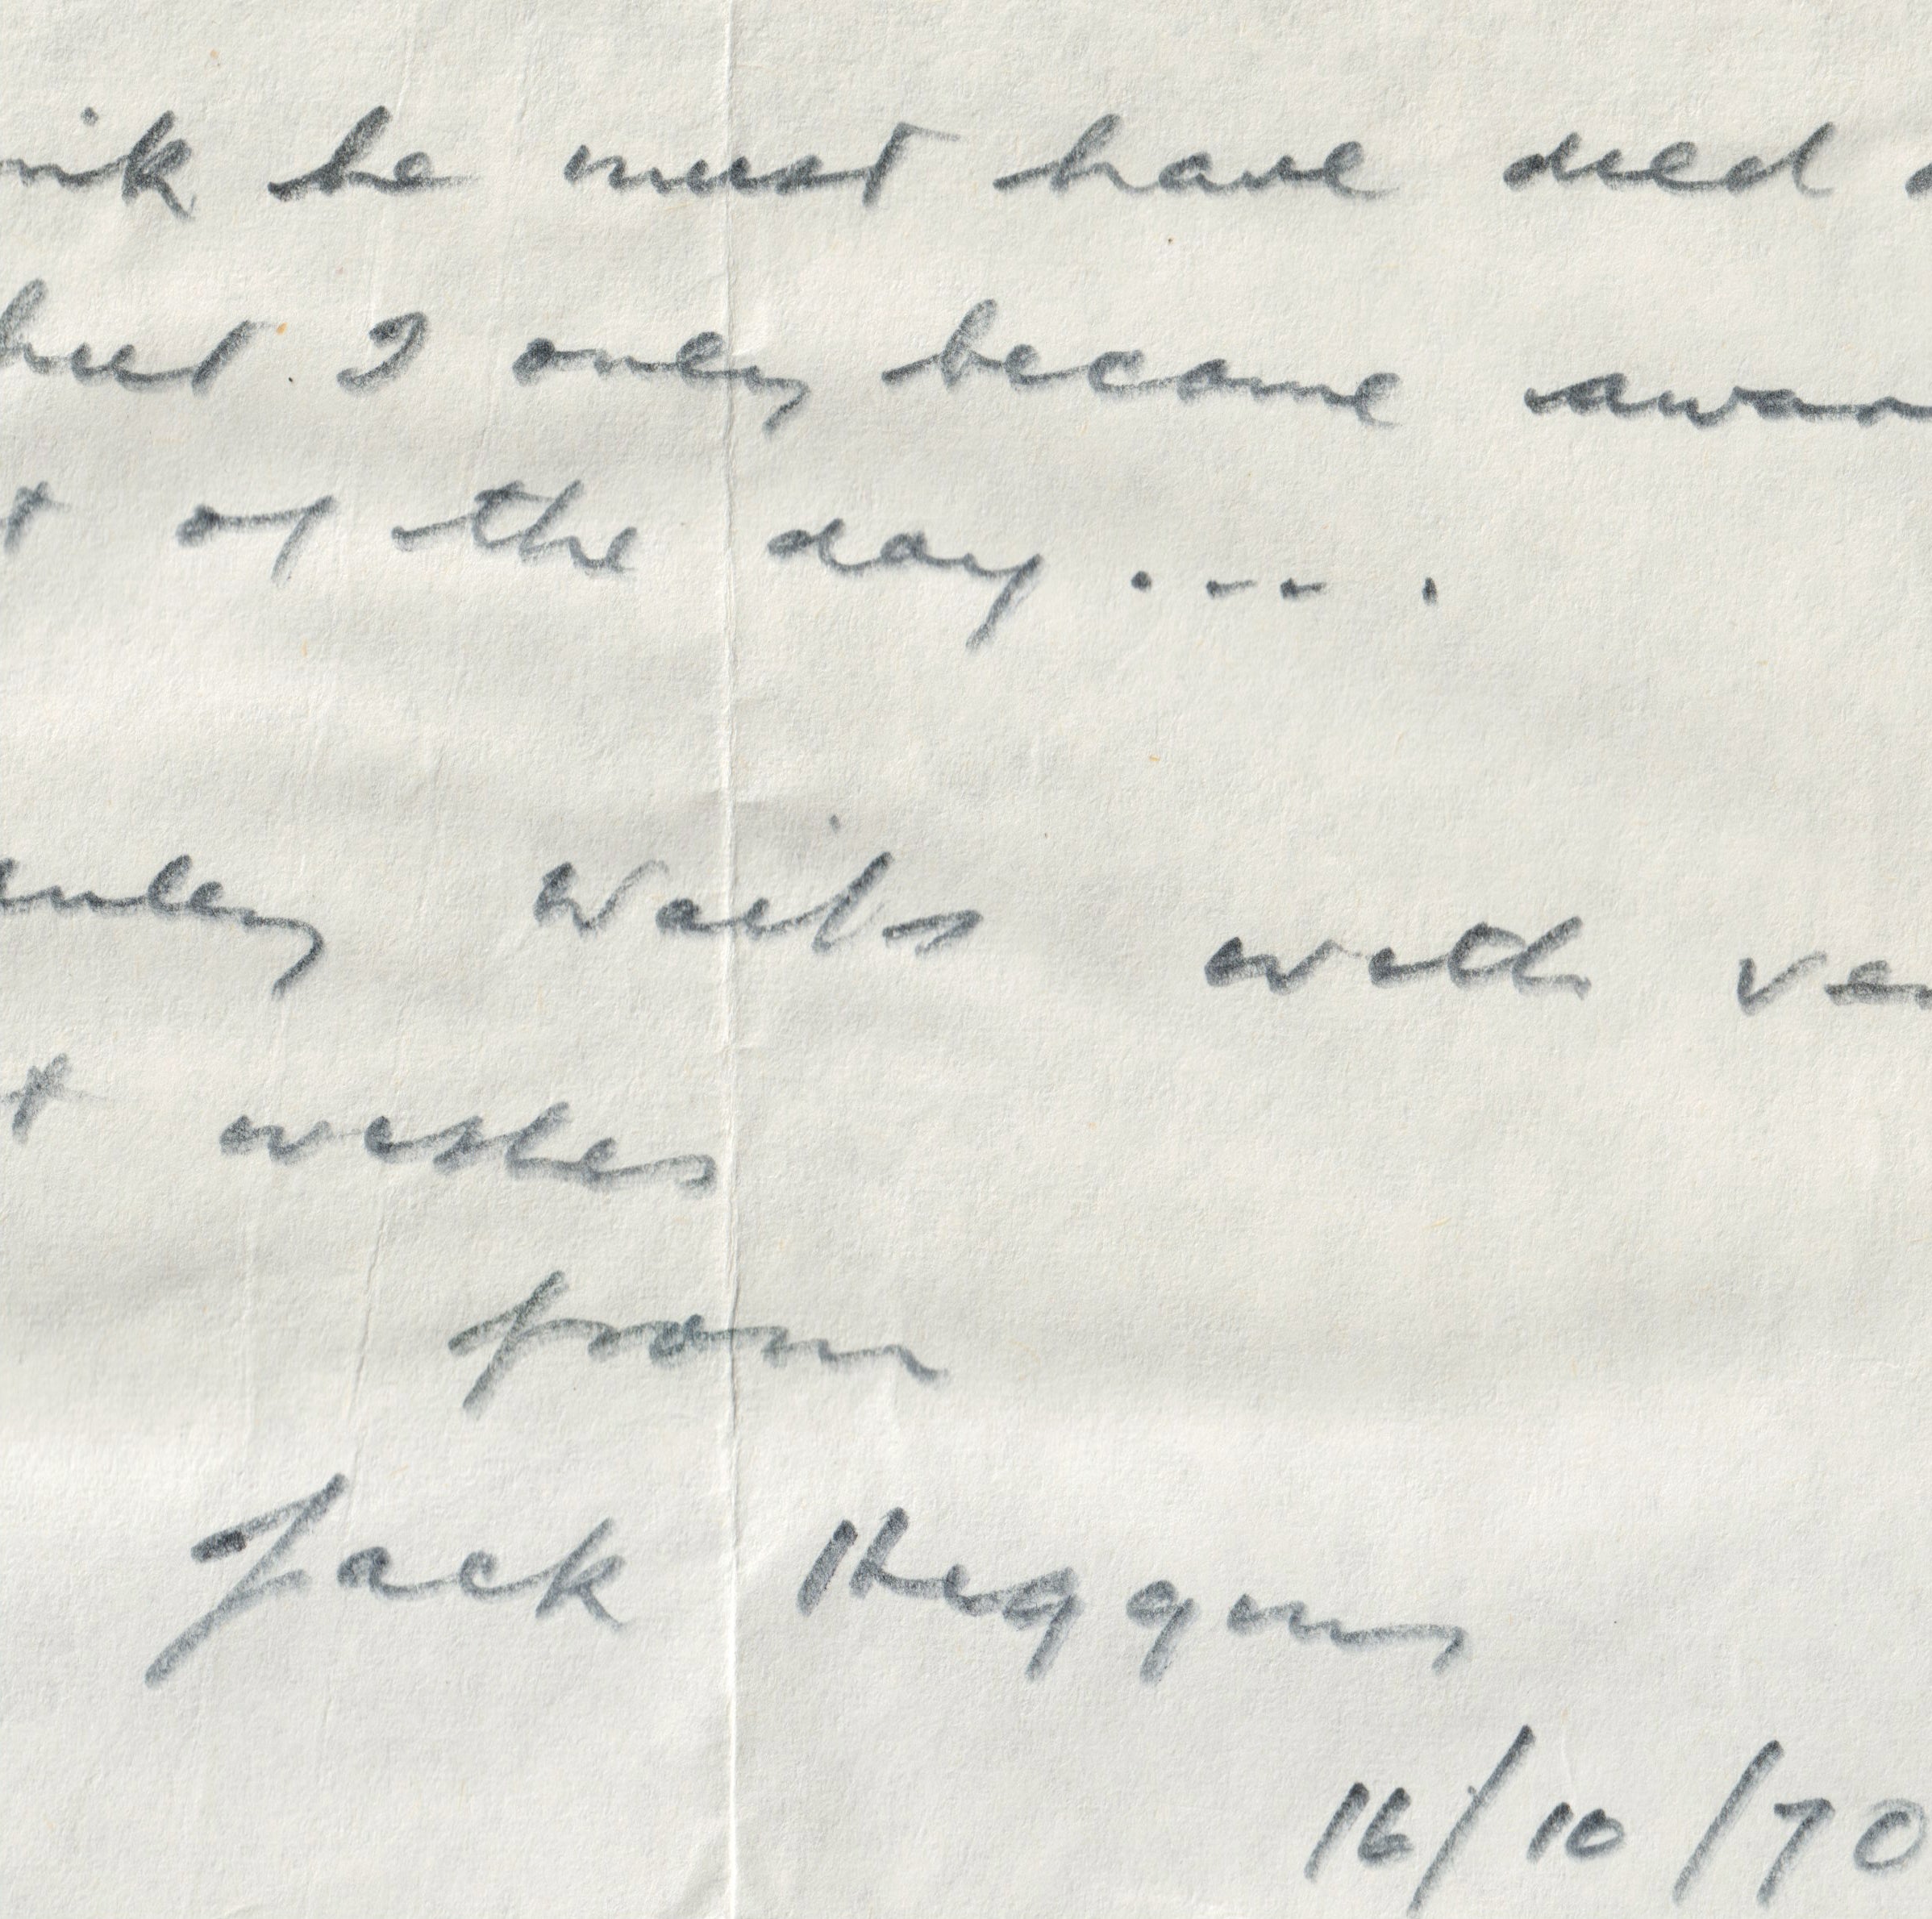 he must have died
but I only became
of the day ....
Waits with
wishes
from
Jack Higgins
16/10/70